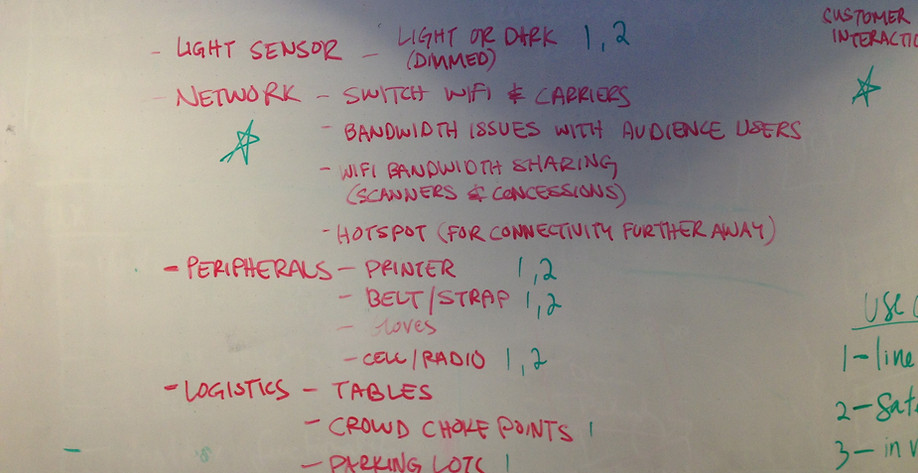 - LIGHT SENSOR - LIGHT OR DARK 1,2
(DIMMED)
- NETWORK - SWITCH WIFI & CARRIERS
- BANDWIDTH ISSUES WITH AUDIENCE USERS
- WIFI BANDWIDTH SHARING
(SCANNERS & CONCESSIONS)
- HOTSPOT (FOR CONNECTIVITY FURTHER AWAY)
- PERIPHERALS - PRINTER 1,2
- BELT/STRAP 1,2
- Gloves
- CELL/RADIO 1,2
- LOGISTICS - TABLES
- CROWD CHOKE POINTS 1
- PARKING LOTS 1
CUSTOMER
INTERACTIO
USE
1-line
2-Sat
3-in